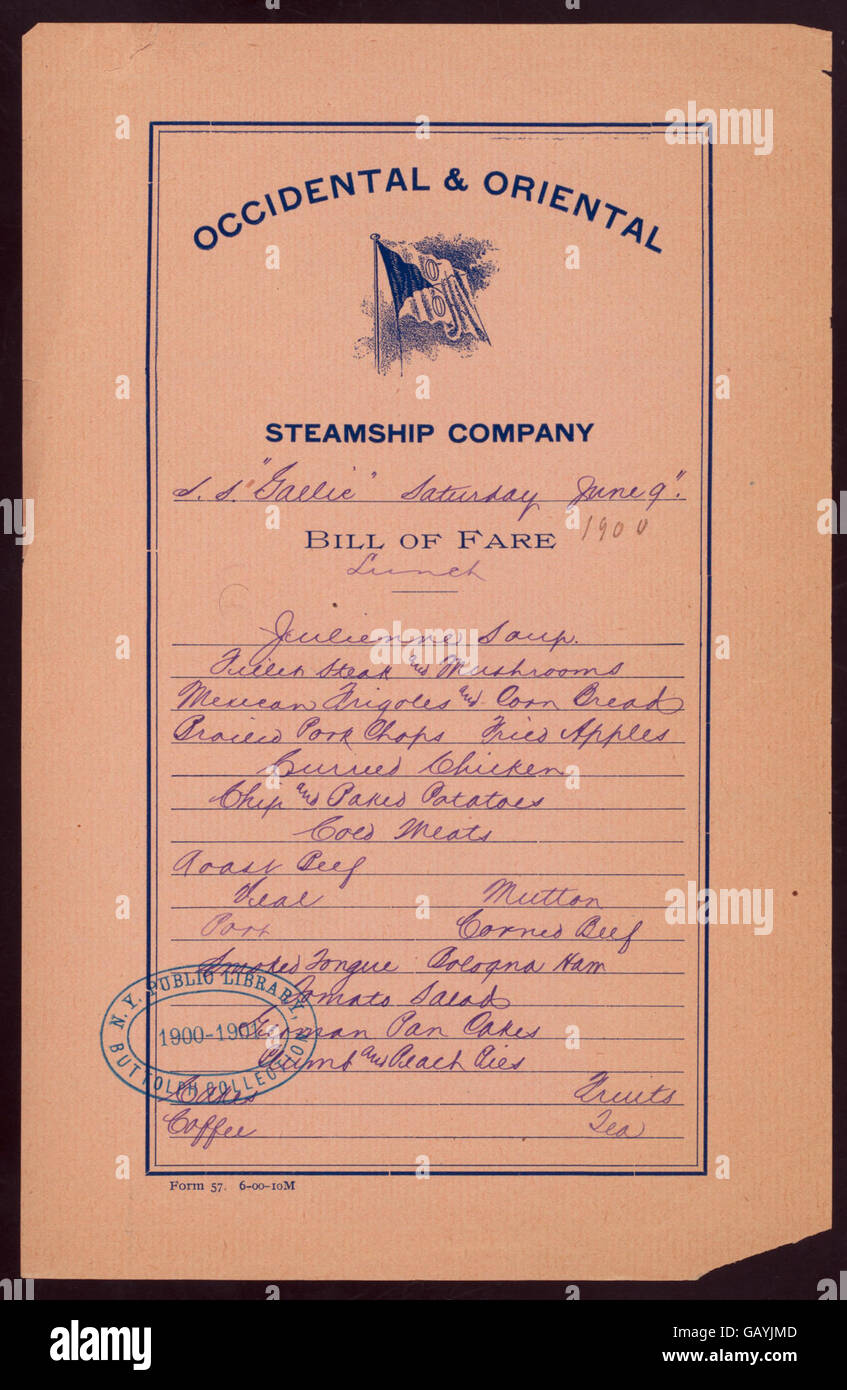 OCCIDENTAL & ORIENTAL
STEAMSHIP COMPANY
S. S. "Gaelic" Saturday June 9".
1900
BILL OF FARE
Lunch
Julienne Soup.
Fillet Steak and Mushrooms
Mexican Frigoles and Corn Bread
Braised Pork Chops Fried Apples
Curried Chicken
Chip and Baked Potatoes
Cold Meats
Roast Beef
Veal Mutton
Pork Corned Beef
Smoked Tongue Bologna Ham
Tomato Salad
German Pan Cakes
Plumb and Peach Pies
Cakes Fruits
Coffee Tea
N. Y. PUBLIC LIBRARY,
1900-1901
BUTTOLPH COLLECTION
Form 57. 6-00-10M
alamy stock photo
GAYJMD
www.alamy.com